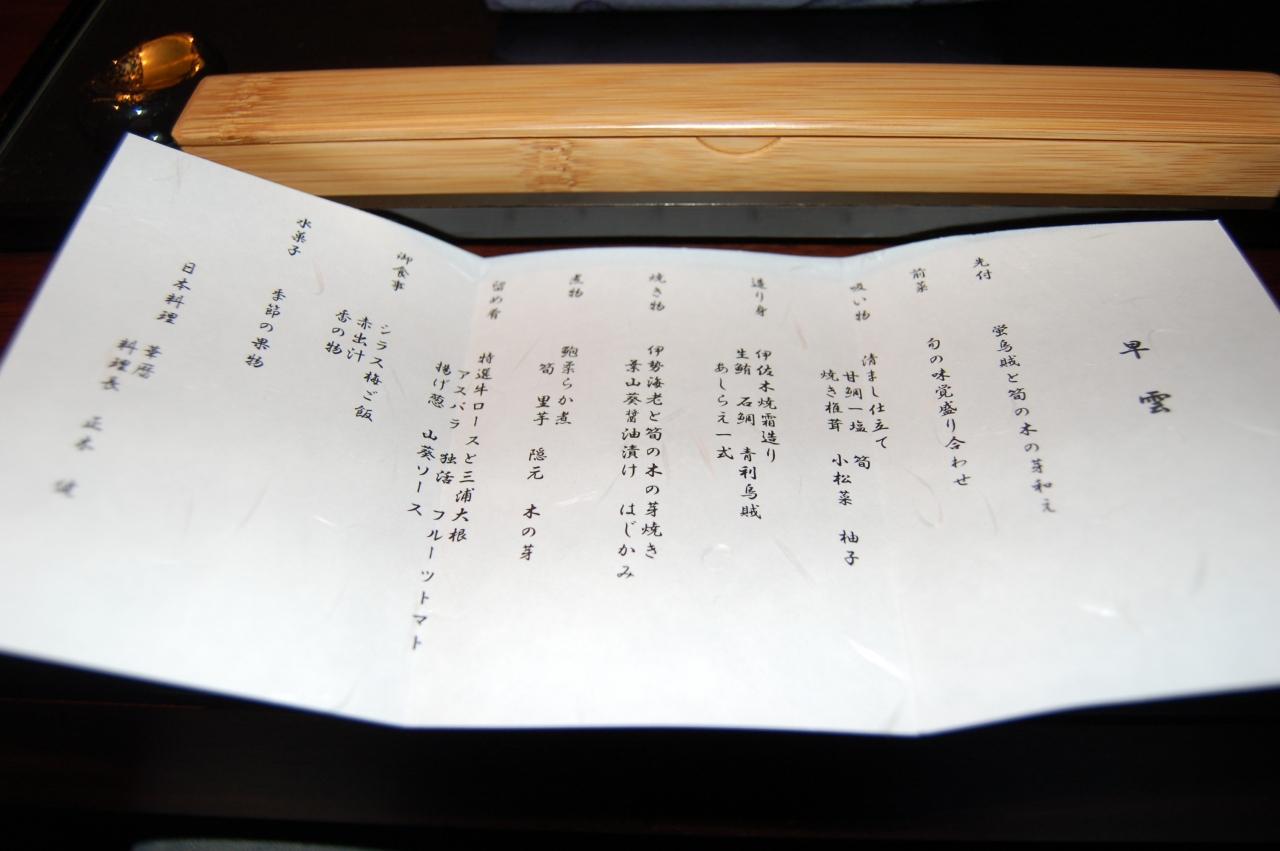 早雲
先付
蛍烏賊と筍の木の芽和え
前菜
旬の味覚盛り合わせ
吸い物
清まし仕立て
甘鯛一塩 筍
焼き椎茸 小松菜 柚子
造り身
伊佐木焼霜造り
生鮪 石鯛 青利烏賊
あしらえ一式
焼き物
伊勢海老と筍の木の芽焼き
葉山葵醤油漬け はじかみ
煮物
鮑柔らか煮
筍 里芋 隠元 木の芽
留め肴
特選牛ロースと三浦大根
アスパラ 独活 フルーツトマト
揚げ葱 山葵ソース
御食事
シラス梅ご飯
赤出汁
香の物
水菓子
季節の果物
日本料理 華暦
料理長 正木 健